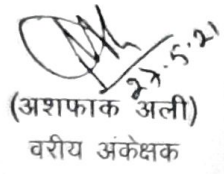 27.5.21
(अशफाक अली)
वरीय अंकेक्षक